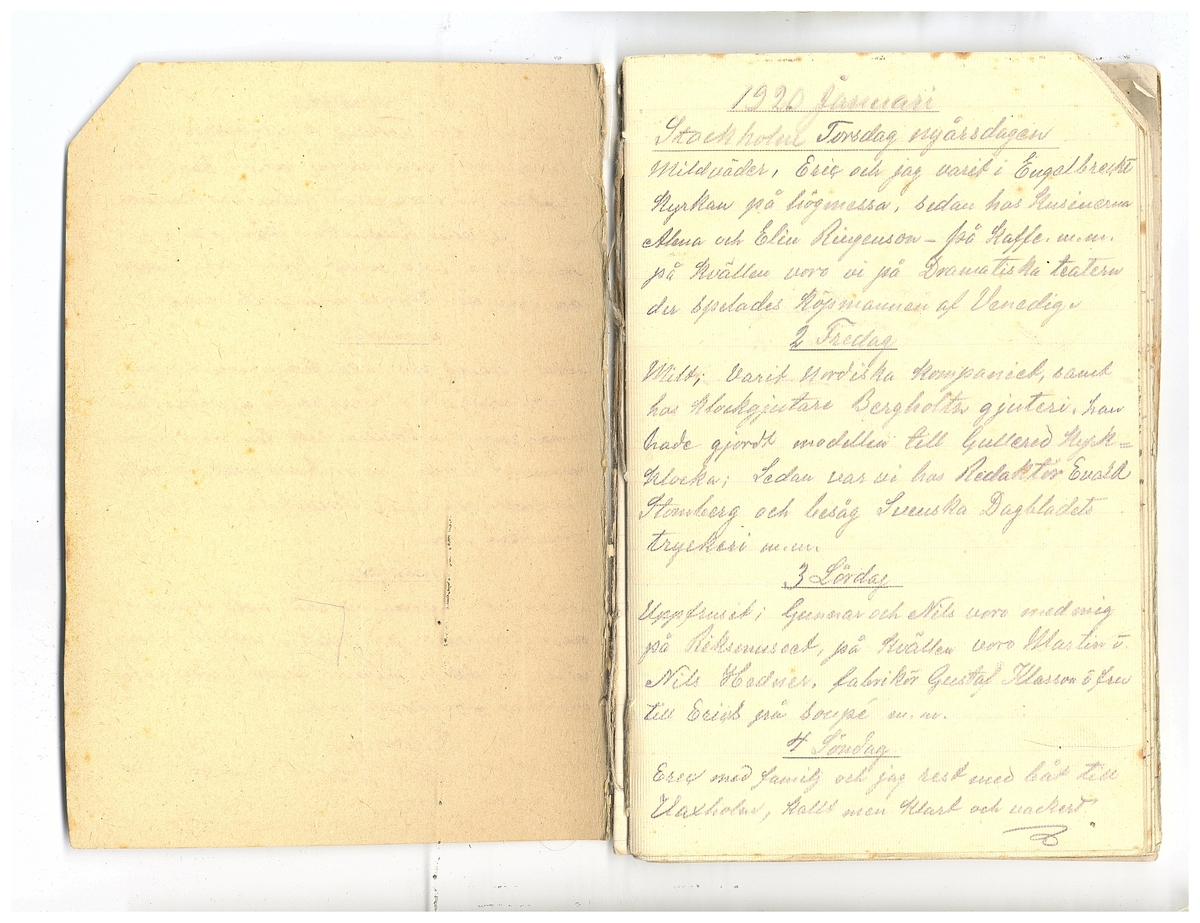 1920 Januari
Stockholm Torsdag nyårsdagen
Mildväder, Eric och jag varit i Engelbreckt
Kyrkan på högmessa, sedan hos Kusinerna
Alma och Elin Ringenson – på Kaffe m.m.
på Kvällen voro vi på Dramatiska teatern
der spelades Köpmannen af Venedig.
2 Fredag
Milt; Varit Nordiska Kompaniet, samt
hos Klockgjutare Bergholtz gjuteri, han
hade gjordt modellen till Gullered Kyrk=
Klocka; Sedan var vi hos Redaktör Evald
Stomberg och besåg Svenska Dagbladets
tryckeri m.m.
3 Lördag
Uppfruset; Gunnar och Nils voro med mig
på Riksmuseet, på Kvällen voro Martin o
Nils Hedner, fabrikör Gustaf Klasson o fru
till Erics på soupé m.m.
4 Söndag
Eric med familj och jag rest med båt till
Vaxholm, Kallt men Klart och vackert